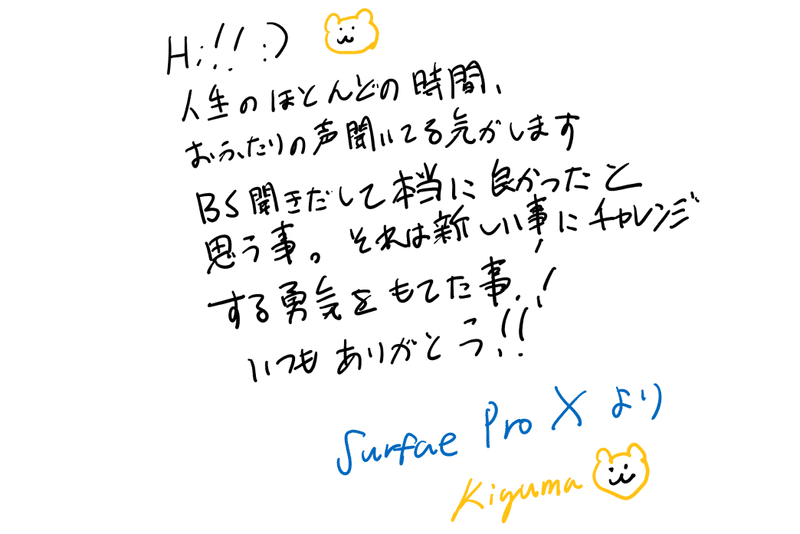 Hi!! :)
人生のほとんどの時間、
おふたりの声聞いてる気がします
BS聞きだして本当に良かったと
思う事。それは新しい事にチャレンジ
する勇気をもてた事!!
いつもありがとう!!
Surfae Pro X より
Kiguma